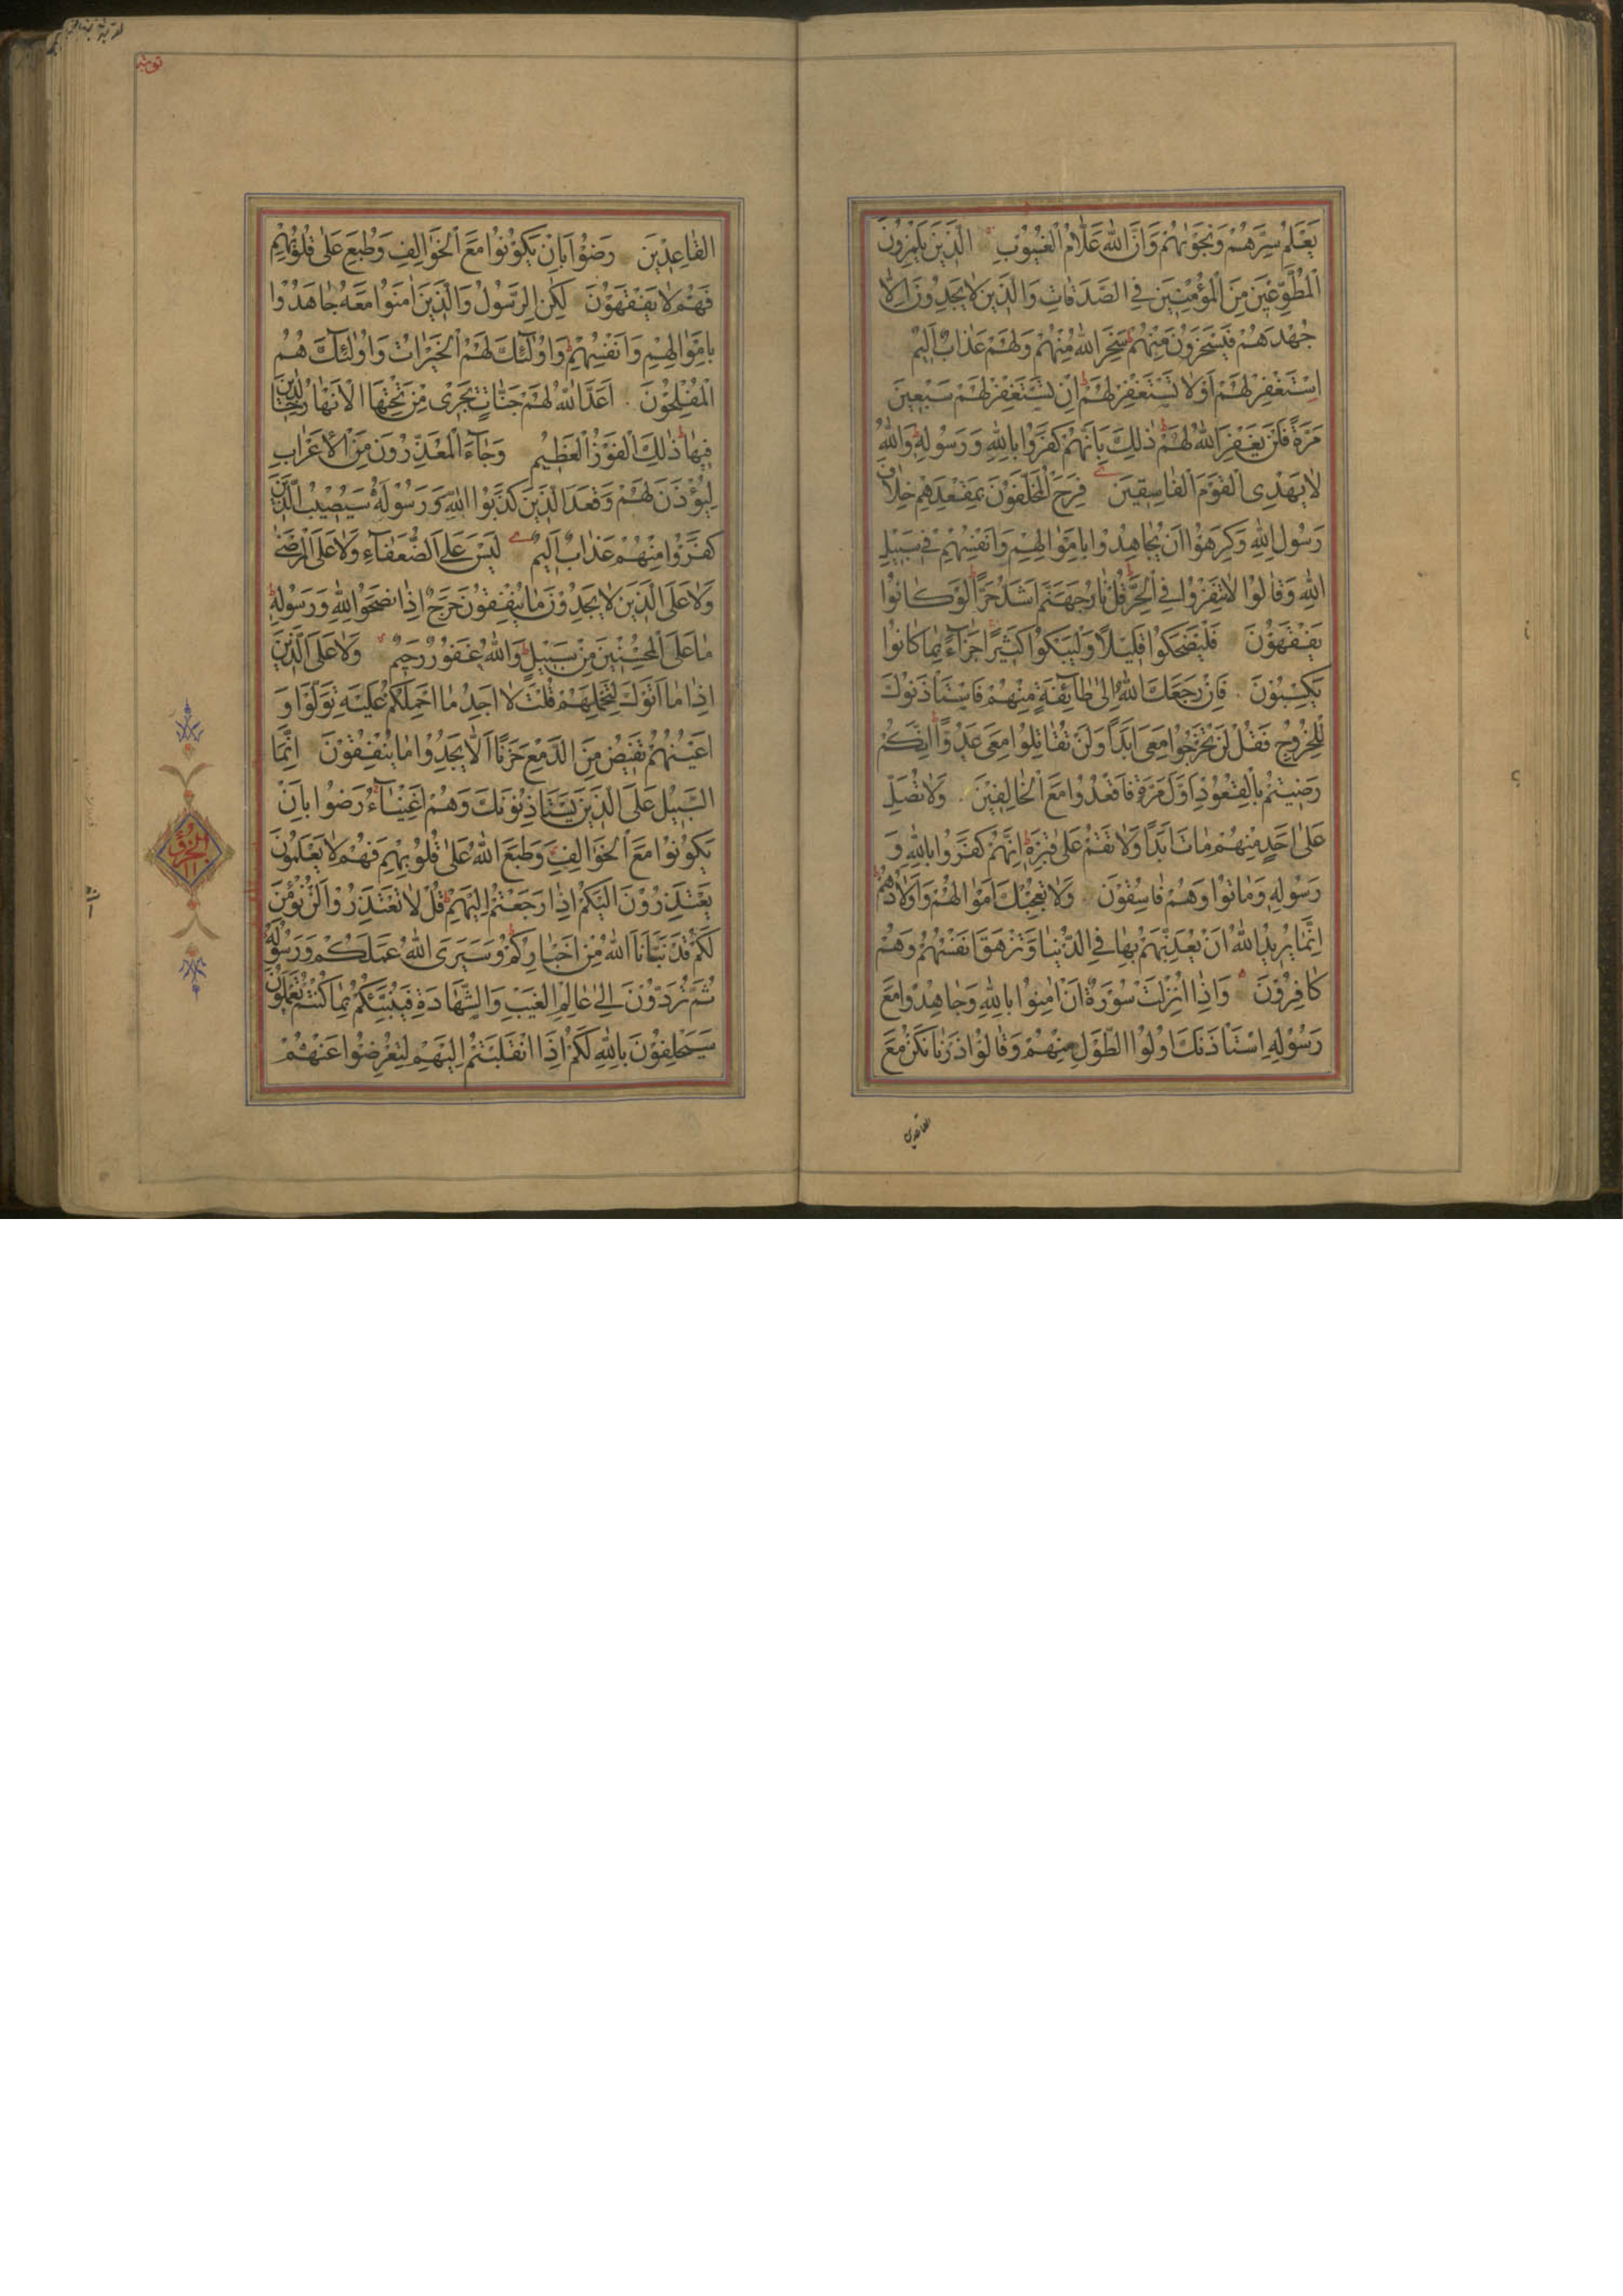 يَعْلَمُ سِرَّهُمْ وَنَجْوٰيهُمْ وَاَنَّ اللّٰهَ عَلَّامُ الْغُيُوبِ الَّذِينَ يَلْمِزُونَ
الْمُطَّوِّعِينَ مِنَ الْمُؤْمِنِينَ فِي الصَّدَقَاتِ وَالَّذِينَ لَا يَجِدُونَ اِلَّا
جُهْدَهُمْ فَيَسْخَرُونَ مِنْهُمْ سَخِرَ اللّٰهُ مِنْهُمْ وَلَهُمْ عَذَابٌ اَلِيمٌ
اِسْتَغْفِرْ لَهُمْ اَوْ لَا تَسْتَغْفِرْ لَهُمْ اِنْ تَسْتَغْفِرْ لَهُمْ سَبْعِينَ
مَرَّةً فَلَنْ يَغْفِرَ اللّٰهُ لَهُمْ ذٰلِكَ بِاَنَّهُمْ كَفَرُوا بِاللّٰهِ وَرَسُولِهِ وَاللّٰهُ
لَا يَهْدِي الْقَوْمَ الْفَاسِقِينَ فَرِحَ الْمُخَلَّفُونَ بِمَقْعَدِهِمْ خِلَافَ
رَسُولِ اللّٰهِ وَكَرِهُوا اَنْ يُجَاهِدُوا بِاَمْوَالِهِمْ وَاَنْفُسِهِمْ فِي سَبِيلِ
اللّٰهِ وَقَالُوا لَا تَنْفِرُوا فِي الْحَرِّ قُلْ نَارُ جَهَنَّمَ اَشَدُّ حَرًّا لَوْ كَانُوا
يَفْقَهُونَ فَلْيَضْحَكُوا قَلِيلًا وَلْيَبْكُوا كَثِيرًا جَزَاءً بِمَا كَانُوا
يَكْسِبُونَ فَاِنْ رَجَعَكَ اللّٰهُ اِلٰى طَائِفَةٍ مِنْهُمْ فَاسْتَاْذَنُوكَ
لِلْخُرُوجِ فَقُلْ لَنْ تَخْرُجُوا مَعِيَ اَبَدًا وَلَنْ تُقَاتِلُوا مَعِيَ عَدُوًّا اِنَّكُمْ
رَضِيتُمْ بِالْقُعُودِ اَوَّلَ مَرَّةٍ فَاقْعُدُوا مَعَ الْخَالِفِينَ وَلَا تُصَلِّ
عَلٰى اَحَدٍ مِنْهُمْ مَاتَ اَبَدًا وَلَا تَقُمْ عَلٰى قَبْرِهِ اِنَّهُمْ كَفَرُوا بِاللّٰهِ وَ
رَسُولِهِ وَمَاتُوا وَهُمْ فَاسِقُونَ وَلَا تُعْجِبْكَ اَمْوَالُهُمْ وَاَوْلَادُهُمْ
اِنَّمَا يُرِيدُ اللّٰهُ اَنْ يُعَذِّبَهُمْ بِهَا فِي الدُّنْيَا وَتَزْهَقَ اَنْفُسُهُمْ وَهُمْ
كَافِرُونَ وَاِذَا اُنْزِلَتْ سُورَةٌ اَنْ اٰمِنُوا بِاللّٰهِ وَجَاهِدُوا مَعَ
رَسُولِهِ اسْتَاْذَنَكَ اُولُوا الطَّوْلِ مِنْهُمْ وَقَالُوا ذَرْنَا نَكُنْ مَعَ
القاعدين
توبه
الْقَاعِدِينَ رَضُوا بِاَنْ يَكُونُوا مَعَ الْخَوَالِفِ وَطُبِعَ عَلٰى قُلُوبِهِمْ
فَهُمْ لَا يَفْقَهُونَ لٰكِنِ الرَّسُولُ وَالَّذِينَ اٰمَنُوا مَعَهُ جَاهَدُوا
بِاَمْوَالِهِمْ وَاَنْفُسِهِمْ وَاُولٰئِكَ لَهُمُ الْخَيْرَاتُ وَاُولٰئِكَ هُمُ
الْمُفْلِحُونَ اَعَدَّ اللّٰهُ لَهُمْ جَنَّاتٍ تَجْرِي مِنْ تَحْتِهَا الْاَنْهَارُ خَالِدِينَ
فِيهَا ذٰلِكَ الْفَوْزُ الْعَظِيمُ وَجَاءَ الْمُعَذِّرُونَ مِنَ الْاَعْرَابِ
لِيُؤْذَنَ لَهُمْ وَقَعَدَ الَّذِينَ كَذَبُوا اللّٰهَ وَرَسُولَهُ سَيُصِيبُ الَّذِينَ
كَفَرُوا مِنْهُمْ عَذَابٌ اَلِيمٌ لَيْسَ عَلَى الضُّعَفَاءِ وَلَا عَلَى الْمَرْضٰى
وَلَا عَلَى الَّذِينَ لَا يَجِدُونَ مَا يُنْفِقُونَ حَرَجٌ اِذَا نَصَحُوا لِلّٰهِ وَرَسُولِهِ
مَا عَلَى الْمُحْسِنِينَ مِنْ سَبِيلٍ وَاللّٰهُ غَفُورٌ رَحِيمٌ وَلَا عَلَى الَّذِينَ
اِذَا مَا اَتَوْكَ لِتَحْمِلَهُمْ قُلْتَ لَا اَجِدُ مَا اَحْمِلُكُمْ عَلَيْهِ تَوَلَّوْا وَ
اَعْيُنُهُمْ تَفِيضُ مِنَ الدَّمْعِ حَزَنًا اَلَّا يَجِدُوا مَا يُنْفِقُونَ اِنَّمَا
السَّبِيلُ عَلَى الَّذِينَ يَسْتَاْذِنُونَكَ وَهُمْ اَغْنِيَاءُ رَضُوا بِاَنْ
يَكُونُوا مَعَ الْخَوَالِفِ وَطَبَعَ اللّٰهُ عَلٰى قُلُوبِهِمْ فَهُمْ لَا يَعْلَمُونَ
يَعْتَذِرُونَ اِلَيْكُمْ اِذَا رَجَعْتُمْ اِلَيْهِمْ قُلْ لَا تَعْتَذِرُوا لَنْ نُؤْمِنَ
لَكُمْ قَدْ نَبَّاَنَا اللّٰهُ مِنْ اَخْبَارِكُمْ وَسَيَرَى اللّٰهُ عَمَلَكُمْ وَرَسُولُهُ
ثُمَّ تُرَدُّونَ اِلٰى عَالِمِ الْغَيْبِ وَالشَّهَادَةِ فَيُنَبِّئُكُمْ بِمَا كُنْتُمْ تَعْمَلُونَ
سَيَحْلِفُونَ بِاللّٰهِ لَكُمْ اِذَا انْقَلَبْتُمْ اِلَيْهِمْ لِتُعْرِضُوا عَنْهُمْ
الجزؤ ١١